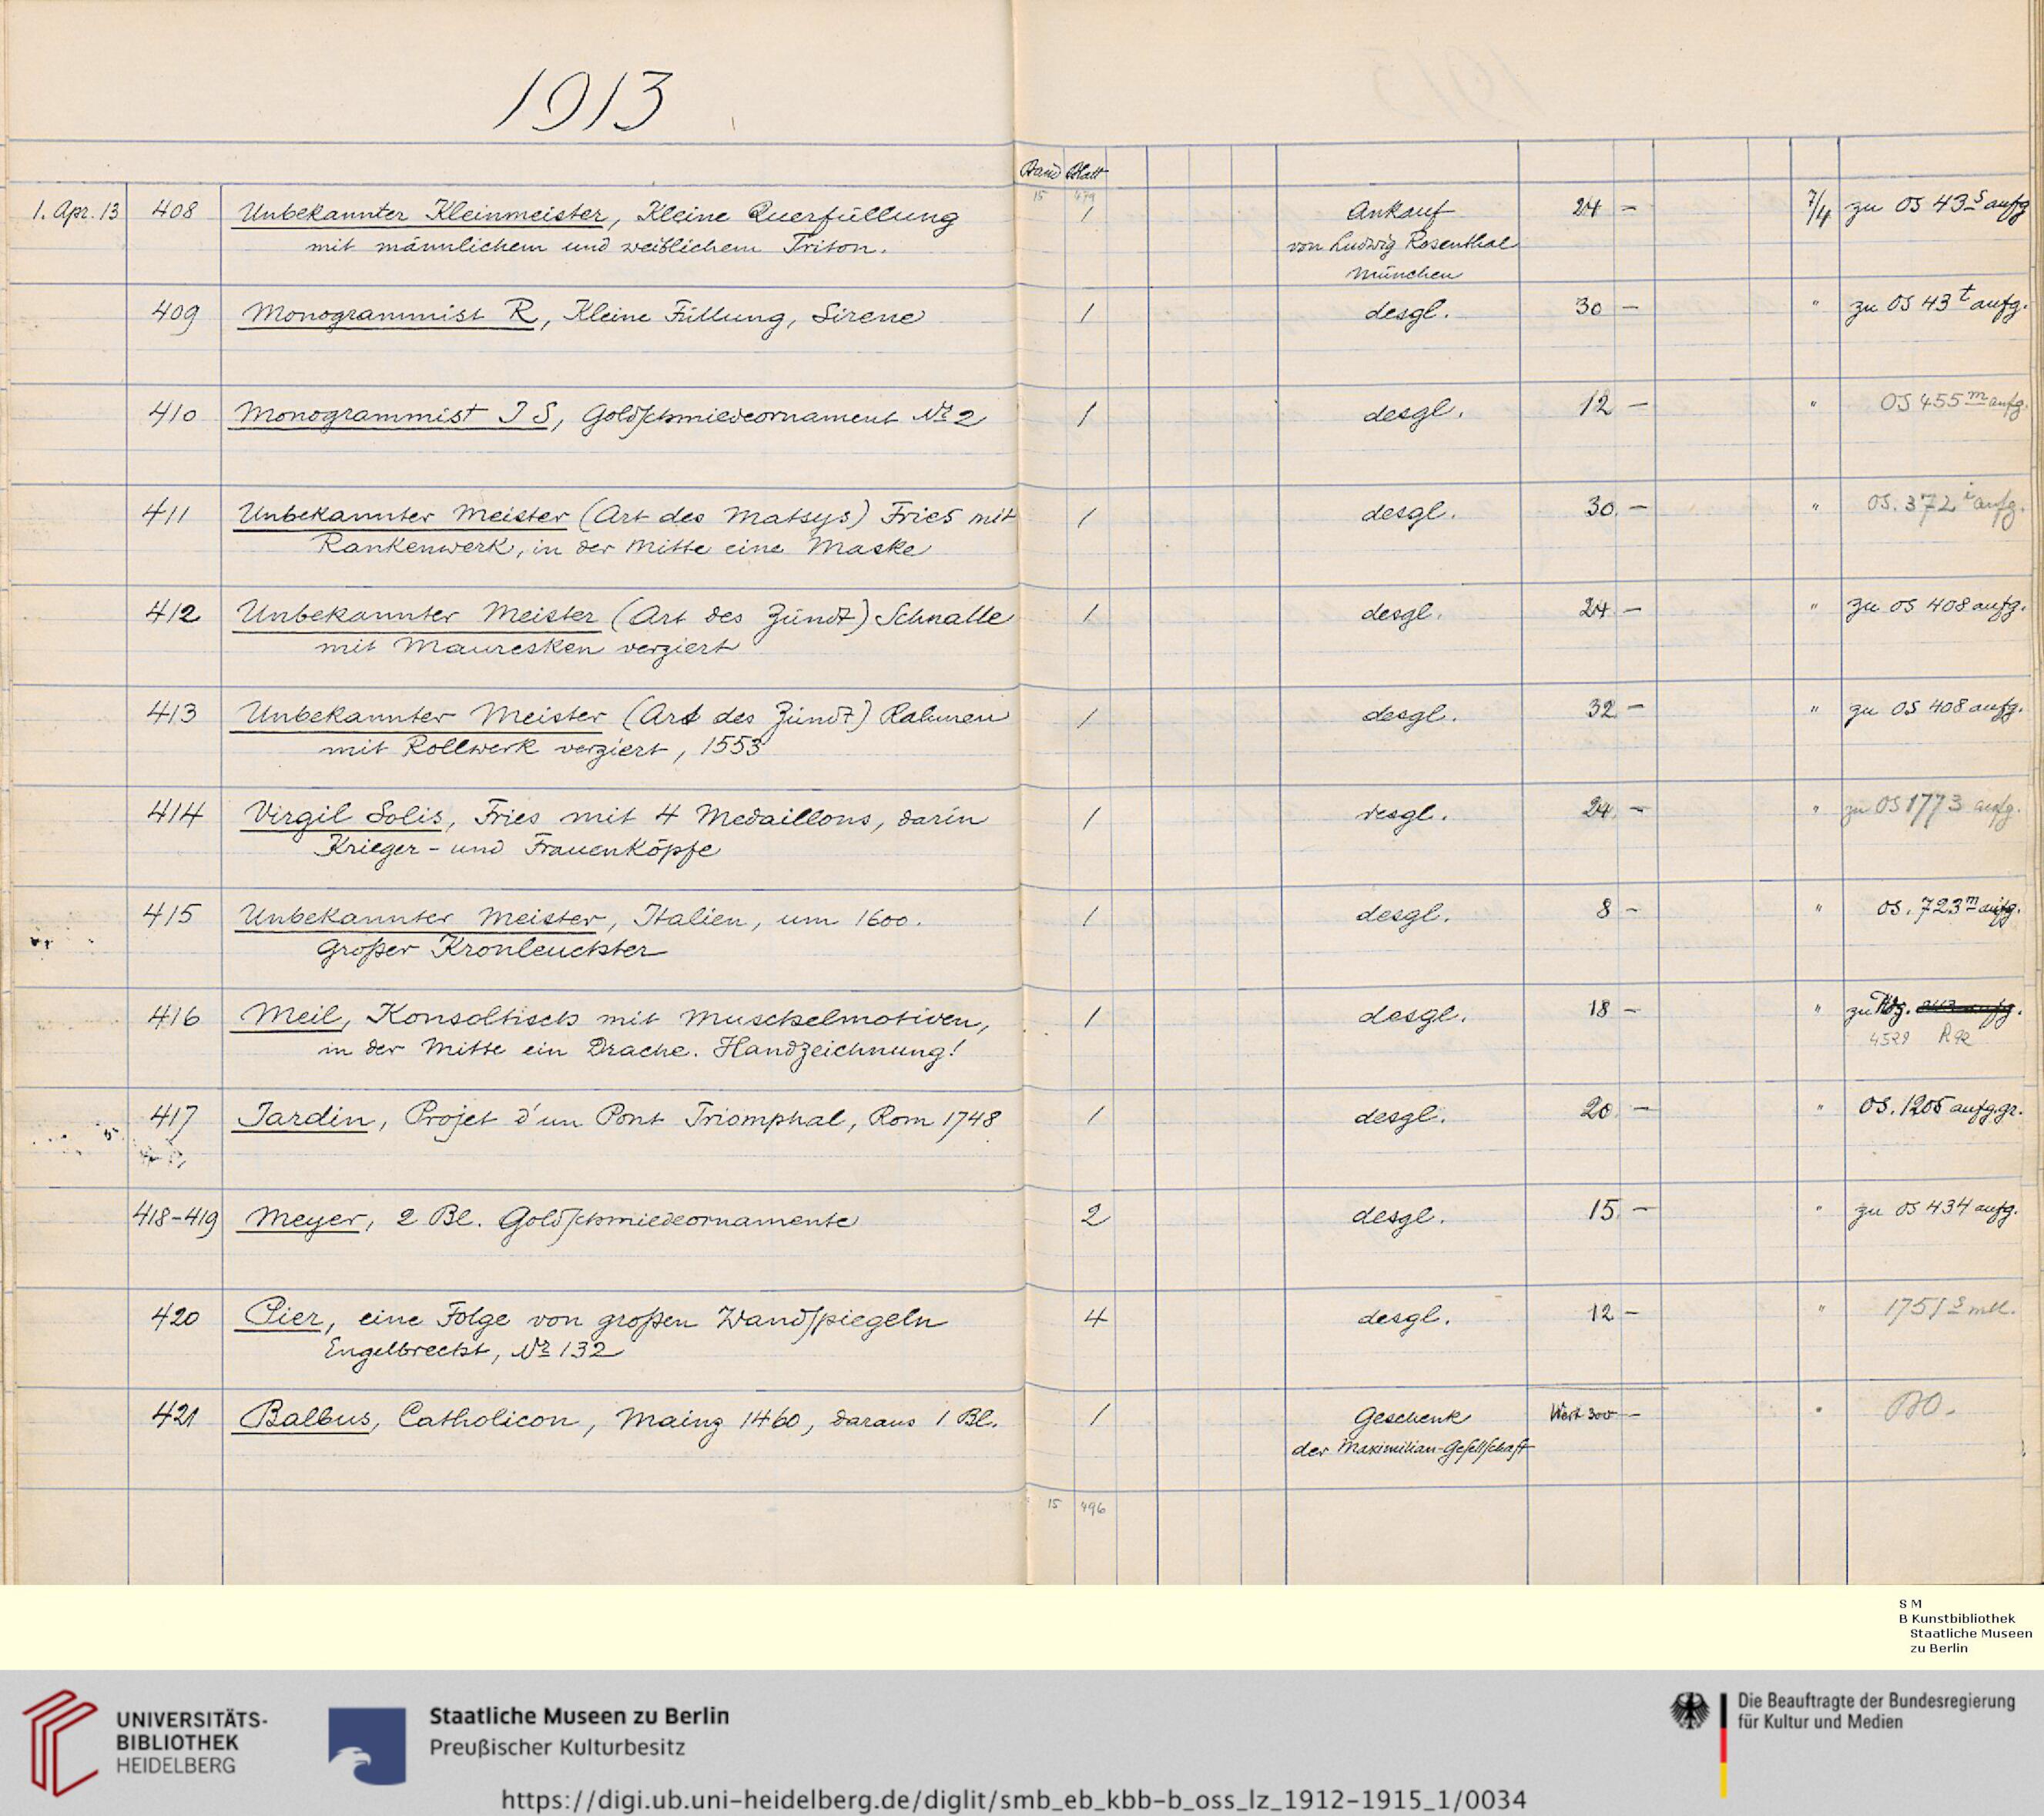 1913
Band Blatt
15 479
1. Apr. 13 408 Unbekannter Kleinmeister, Kleine Querfüllung 1 Ankauf 24 — 7/4 zu OS 43 s aufg
mit männlichem und weiblichem Triton. von Ludwig Rosenthal
München
409 Monogrammist R, Kleine Füllung, Sirene 1 desgl. 30 — " zu OS 43 t aufg.
410 Monogrammist I S, Goldschmiedeornament No 2 1 desgl. 12 — " OS 455 m aufg.
411 Unbekannter Meister (Art des Matsys) Fries mit 1 desgl. 30. — " OS. 372 i aufg.
Rankenwerk, in der Mitte eine Maske
412 Unbekannter Meister (Art des Zündt) Schnalle 1 desgl. 24. — " zu OS 408 aufg.
mit Mauresken verziert
413 Unbekannter Meister (Art des Zündt) Rahmen 1 desgl. 32 — " zu OS 408 aufg.
mit Rollwerk verziert, 1553
414 Virgil Solis, Fries mit 4 Medaillons, darin 1 desgl. 24. — " zu OS 1773 aufg.
Krieger- und Frauenköpfe
415 Unbekannter Meister, Italien, um 1600. 1 desgl. 8 — " OS. 723 m aufg.
Großer Kronleuchter
416 Meil, Konsoltisch mit Muschelmotiven, 1 desgl. 18 — " zu Hdz.
in der Mitte ein Drache. Handzeichnung! 4529
417 Jardin, Projet d'un Pont Triomphal, Rom 1748 1 desgl. 20. — " OS. 1205 aufg. gr.
418-419 Meyer, 2 Bl. Goldschmiedeornamente 2 desgl. 15. — " zu OS 434 aufg.
420 Pier, eine Folge von großen Wandspiegeln 4 desgl. 12 — " 1751 s
Engelbrecht, No 132
421 Balbus, Catholicon, Mainz 1460, daraus 1 Bl. 1 Geschenk Wert 300 —
der Maximilian-Gesellschaft
15 496
S M
B Kunstbibliothek
Staatliche Museen
zu Berlin
UNIVERSITÄTS-
BIBLIOTHEK
HEIDELBERG
Staatliche Museen zu Berlin
Preußischer Kulturbesitz
Die Beauftragte der Bundesregierung
für Kultur und Medien
https://digi.ub.uni-heidelberg.de/diglit/smb_eb_kbb-b_oss_lz_1912-1915_1/0034